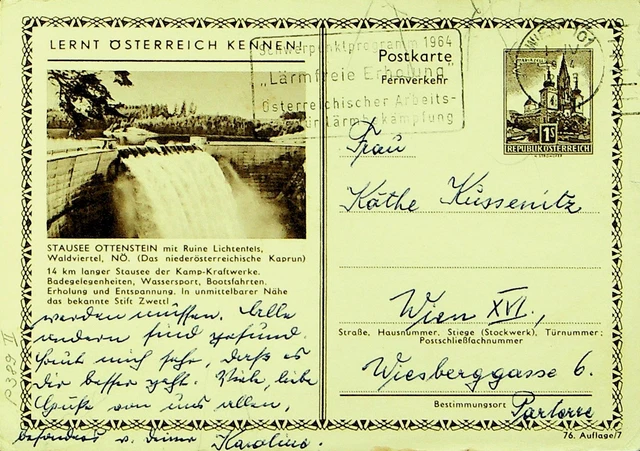 LERNT ÖSTERREICH KENNEN!
Schwerpunktprogramm 1964
„Lärmfreie Erholung"
Österreichischer Arbeits-
für Lärmbekämpfung
WIEN 101
Postkarte
Fernverkehr
1S
REPUBLIK ÖSTERREICH
STAUSEE OTTENSTEIN mit Ruine Lichtenfels,
Waldviertel, NÖ. (Das niederösterreichische Kaprun)
14 km langer Stausee der Kamp-Kraftwerke.
Badegelegenheiten, Wassersport, Bootsfahrten.
Erholung und Entspannung. In unmittelbarer Nähe
das bekannte Stift Zwettl
werden müssen. Alle
andern sind gesund.
Freut mich sehr, daß es
Dir besser geht. Viele, liebe
Grüße von uns allen,
besonders v. Deiner Karoline.
Frau
Käthe Küssenitz
Wien XVI.,
Straße, Hausnummer, Stiege (Stockwerk), Türnummer;
Postschließfachnummer
Wiesberggasse 6.
Bestimmungsort Parterre
76. Auflage/7
P389 II